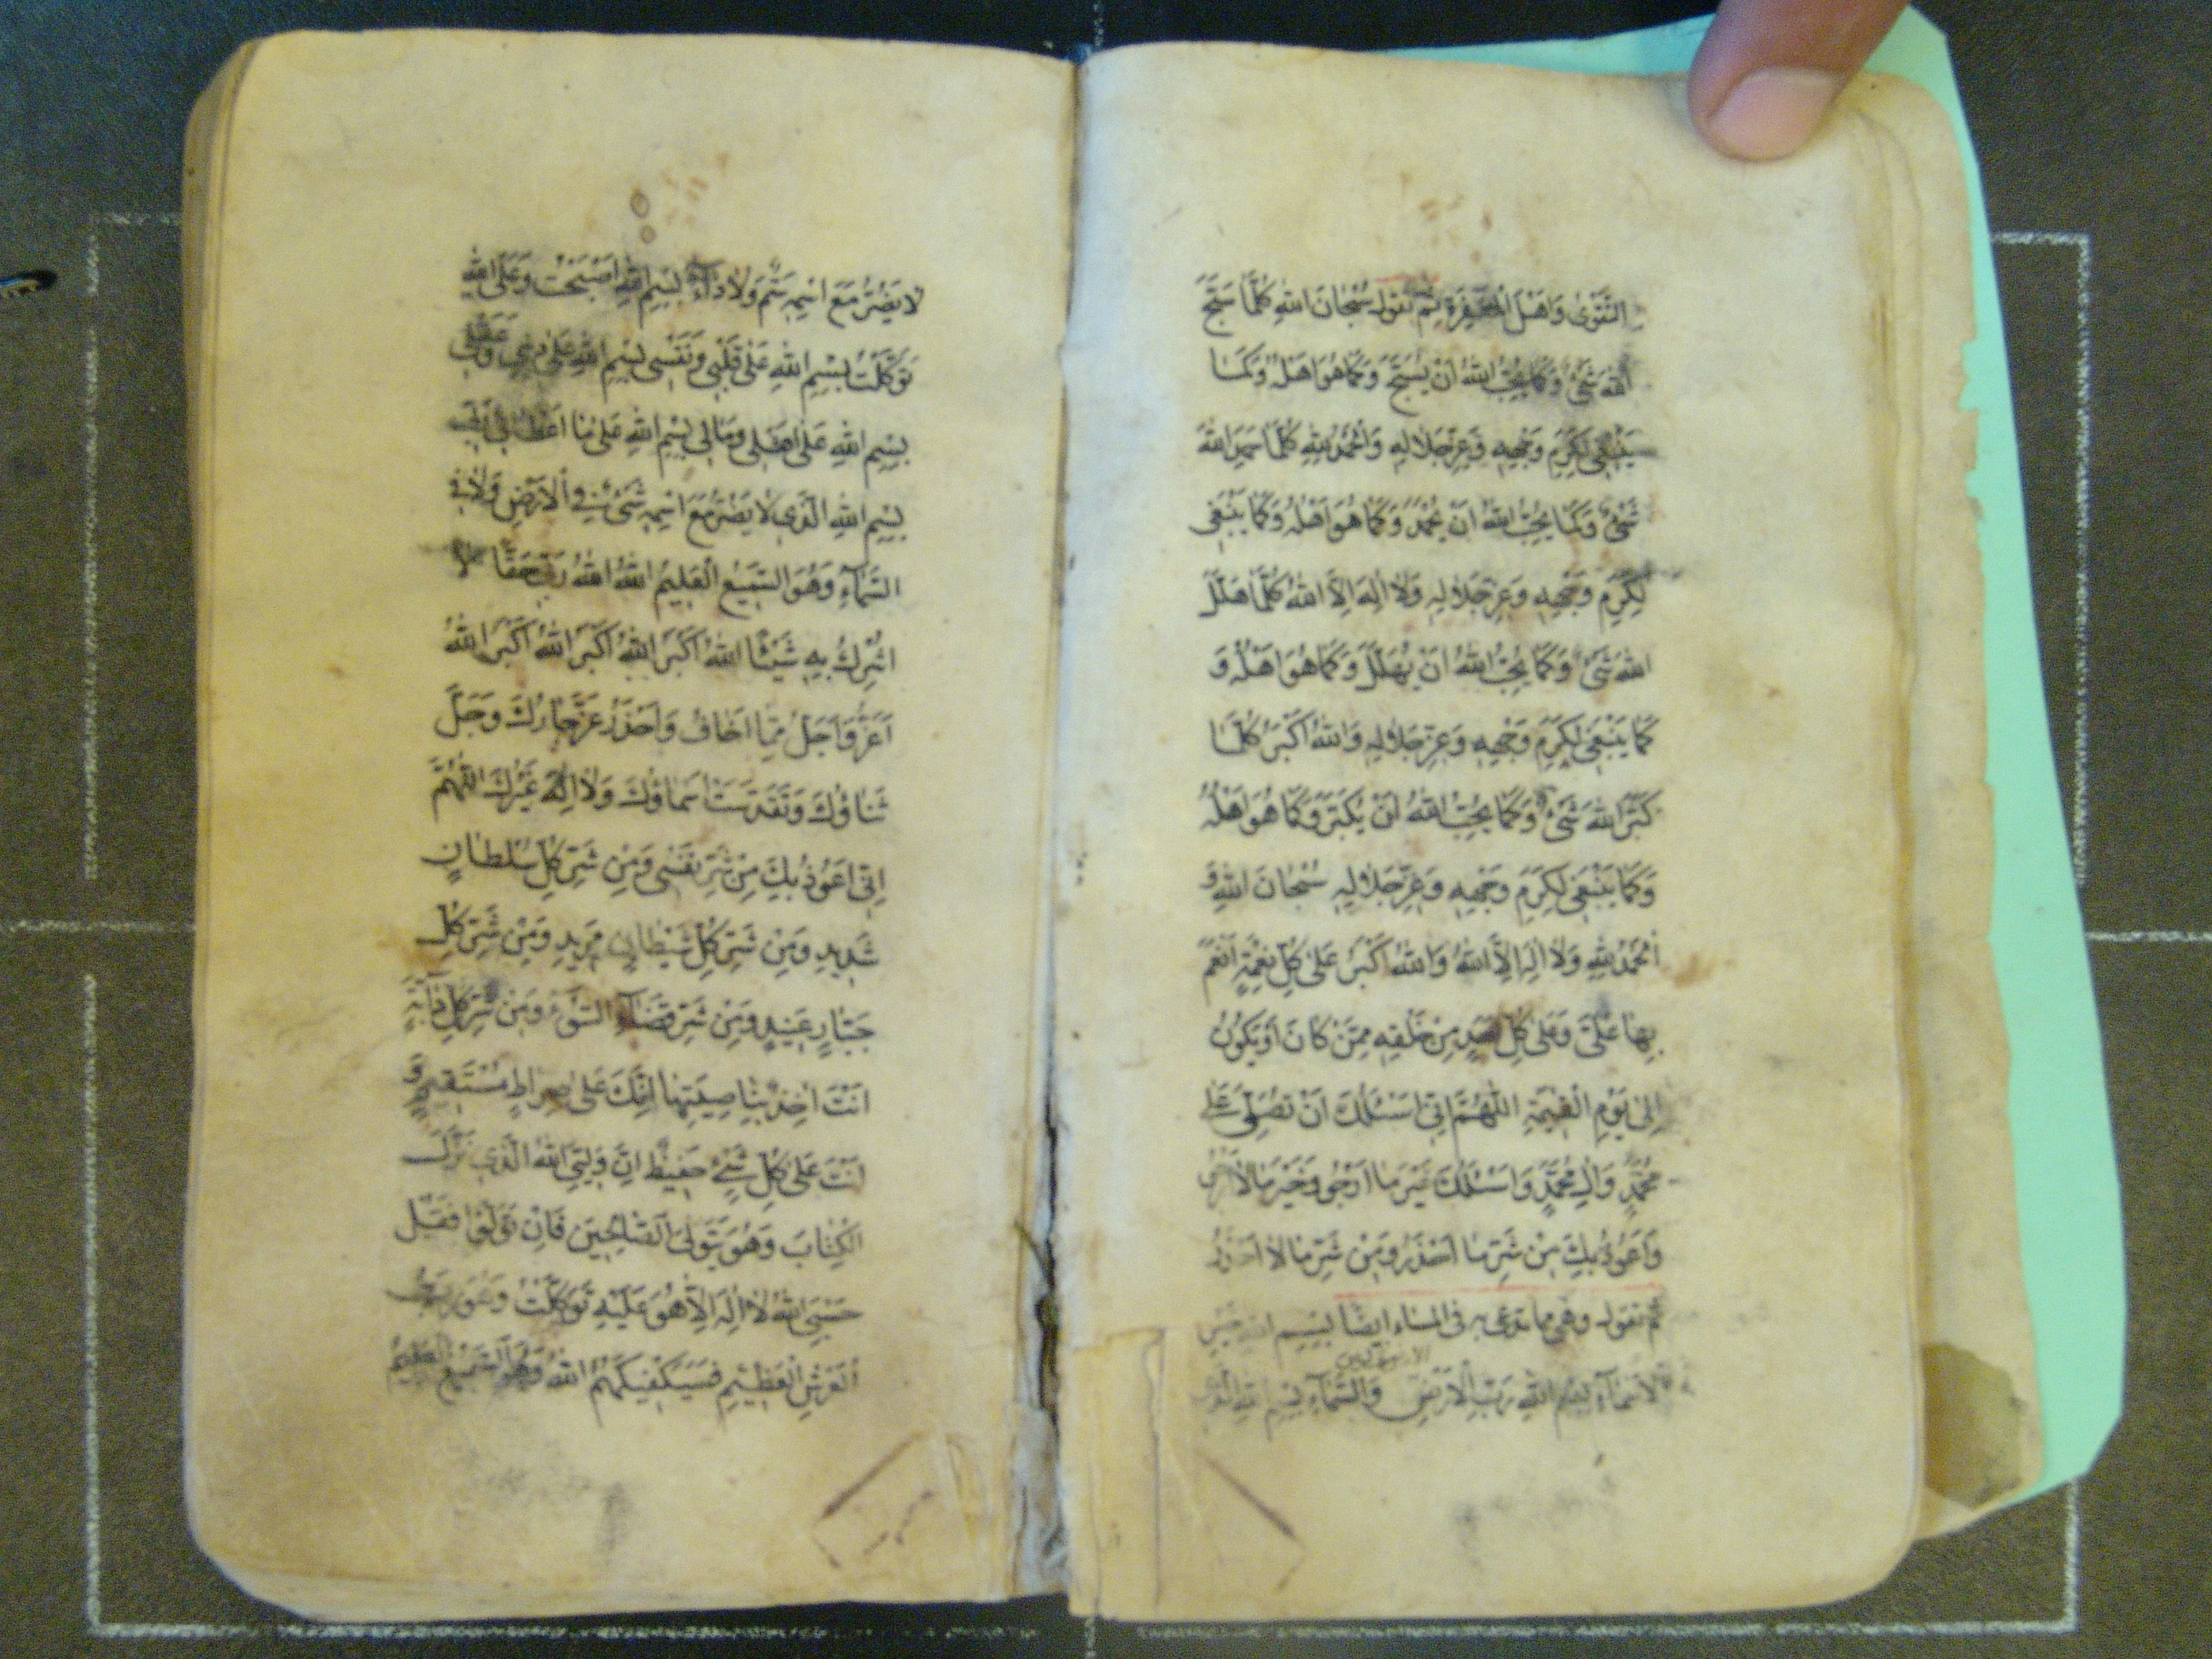 التَّقْوٰى وَاَهْلَ الْمَغْفِرَةِ ثم تقول سُبْحَانَ اللهِ كُلَّمَا سَبَّحَ
اللهَ شَیْءٌ وَكَمَا يُحِبُّ اللهُ اَنْ يُسَبَّحَ وَكَمَا هُوَ اَهْلُهُ وَكَمَا
يَنْبَغِي لِكَرَمِ وَجْهِهِ وَعِزِّ جَلَالِهِ وَالْحَمْدُ لِلّٰهِ كُلَّمَا حَمِدَ اللهَ
شَیْءٌ وَكَمَا يُحِبُّ اللهُ اَنْ يُحْمَدَ وَكَمَا هُوَ اَهْلُهُ وَكَمَا يَنْبَغِي
لِكَرَمِ وَجْهِهِ وَعِزِّ جَلَالِهِ وَلَا اِلٰهَ اِلَّا اللهُ كُلَّمَا هَلَّلَ
اللهَ شَیْءٌ وَكَمَا يُحِبُّ اللهُ اَنْ يُهَلَّلَ وَكَمَا هُوَ اَهْلُهُ وَ
كَمَا يَنْبَغِي لِكَرَمِ وَجْهِهِ وَعِزِّ جَلَالِهِ وَاللهُ اَكْبَرُ كُلَّمَا
كَبَّرَ اللهَ شَیْءٌ وَكَمَا يُحِبُّ اللهُ اَنْ يُكَبَّرَ وَكَمَا هُوَ اَهْلُهُ
وَكَمَا يَنْبَغِي لِكَرَمِ وَجْهِهِ وَعِزِّ جَلَالِهِ سُبْحَانَ اللهِ وَ
الْحَمْدُ لِلّٰهِ وَلَا اِلٰهَ اِلَّا اللهُ وَاللهُ اَكْبَرُ عَلٰى كُلِّ نِعْمَةٍ اَنْعَمَ
بِهَا عَلَيَّ وَعَلٰى كُلِّ اَحَدٍ مِنْ خَلْقِهِ مِمَّنْ كَانَ اَوْ يَكُونُ
اِلٰى يَوْمِ الْقِيٰمَةِ اَللّٰهُمَّ اِنِّي اَسْئَلُكَ اَنْ تُصَلِّيَ عَلٰى
مُحَمَّدٍ وَاٰلِ مُحَمَّدٍ وَاَسْئَلُكَ خَيْرَ مَا اَرْجُو وَخَيْرَ مَا لَا اَرْجُو
وَاَعُوذُ بِكَ مِنْ شَرِّ مَا اَحْذَرُ وَمِنْ شَرِّ مَا لَا اَحْذَرُ
ثم تقول وهي مما يدعى به في المساء ايضا بِسْمِ اللهِ خَيْرِ
الْاَسْمَاءِ بِسْمِ اللهِ رَبِّ الْاَرْضِ وَالسَّمَاءِ بِسْمِ اللهِ الَّذِي
لَا يَضُرُّ مَعَ اسْمِهِ سَمٌّ وَلَا دَاءٌ بِسْمِ اللهِ اَصْبَحْتُ وَعَلَى اللهِ
تَوَكَّلْتُ بِسْمِ اللهِ عَلٰى قَلْبِي وَنَفْسِي بِسْمِ اللهِ عَلٰى دِينِي وَعَقْلِي
بِسْمِ اللهِ عَلٰى اَهْلِي وَمَالِي بِسْمِ اللهِ عَلٰى مَا اَعْطَانِي رَبِّي
بِسْمِ اللهِ الَّذِي لَا يَضُرُّ مَعَ اسْمِهِ شَیْءٌ فِي الْاَرْضِ وَلَا فِي
السَّمَاءِ وَهُوَ السَّمِيعُ الْعَلِيمُ اللهُ اللهُ رَبِّي حَقًّا لَا
اُشْرِكُ بِهِ شَيْئًا اللهُ اَكْبَرُ اللهُ اَكْبَرُ اللهُ اَكْبَرُ اللهُ
اَعَزُّ وَاَجَلُّ مِمَّا اَخَافُ وَاَحْذَرُ عَزَّ جَارُكَ وَجَلَّ
ثَنَاؤُكَ وَتَقَدَّسَتْ اَسْمَاؤُكَ وَلَا اِلٰهَ غَيْرُكَ اَللّٰهُمَّ
اِنِّي اَعُوذُ بِكَ مِنْ شَرِّ نَفْسِي وَمِنْ شَرِّ كُلِّ سُلْطَانٍ
شَدِيدٍ وَمِنْ شَرِّ كُلِّ شَيْطَانٍ مَرِيدٍ وَمِنْ شَرِّ كُلِّ
جَبَّارٍ عَنِيدٍ وَمِنْ شَرِّ قَضَاءِ السُّوءِ وَمِنْ شَرِّ كُلِّ دَابَّةٍ
اَنْتَ اٰخِذٌ بِنَاصِيَتِهَا اِنَّكَ عَلٰى صِرَاطٍ مُسْتَقِيمٍ وَ
اَنْتَ عَلٰى كُلِّ شَیْءٍ حَفِيظٌ اِنَّ وَلِيِّيَ اللهُ الَّذِي نَزَّلَ
الْكِتَابَ وَهُوَ يَتَوَلَّى الصَّالِحِينَ فَاِنْ تَوَلَّوْا فَقُلْ
حَسْبِيَ اللهُ لَا اِلٰهَ اِلَّا هُوَ عَلَيْهِ تَوَكَّلْتُ وَهُوَ رَبُّ
الْعَرْشِ الْعَظِيمِ فَسَيَكْفِيكَهُمُ اللهُ وَهُوَ السَّمِيعُ الْعَلِيمُ